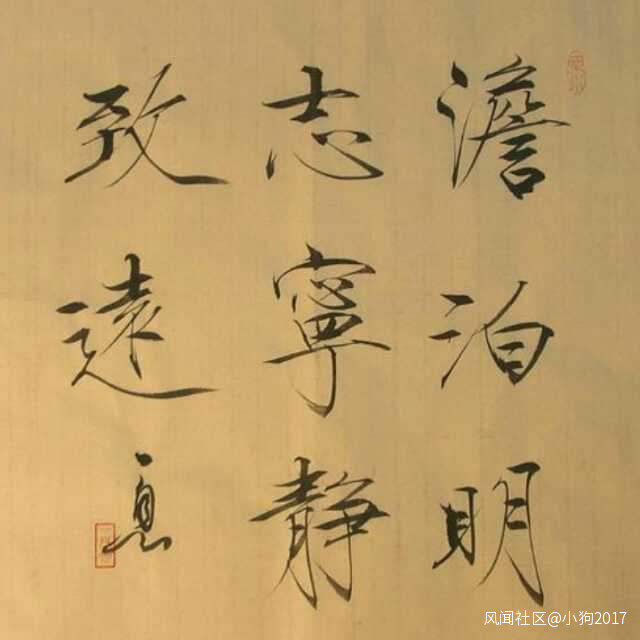 澹泊明
志寧靜
致遠
息
风闻社区@小狗2017